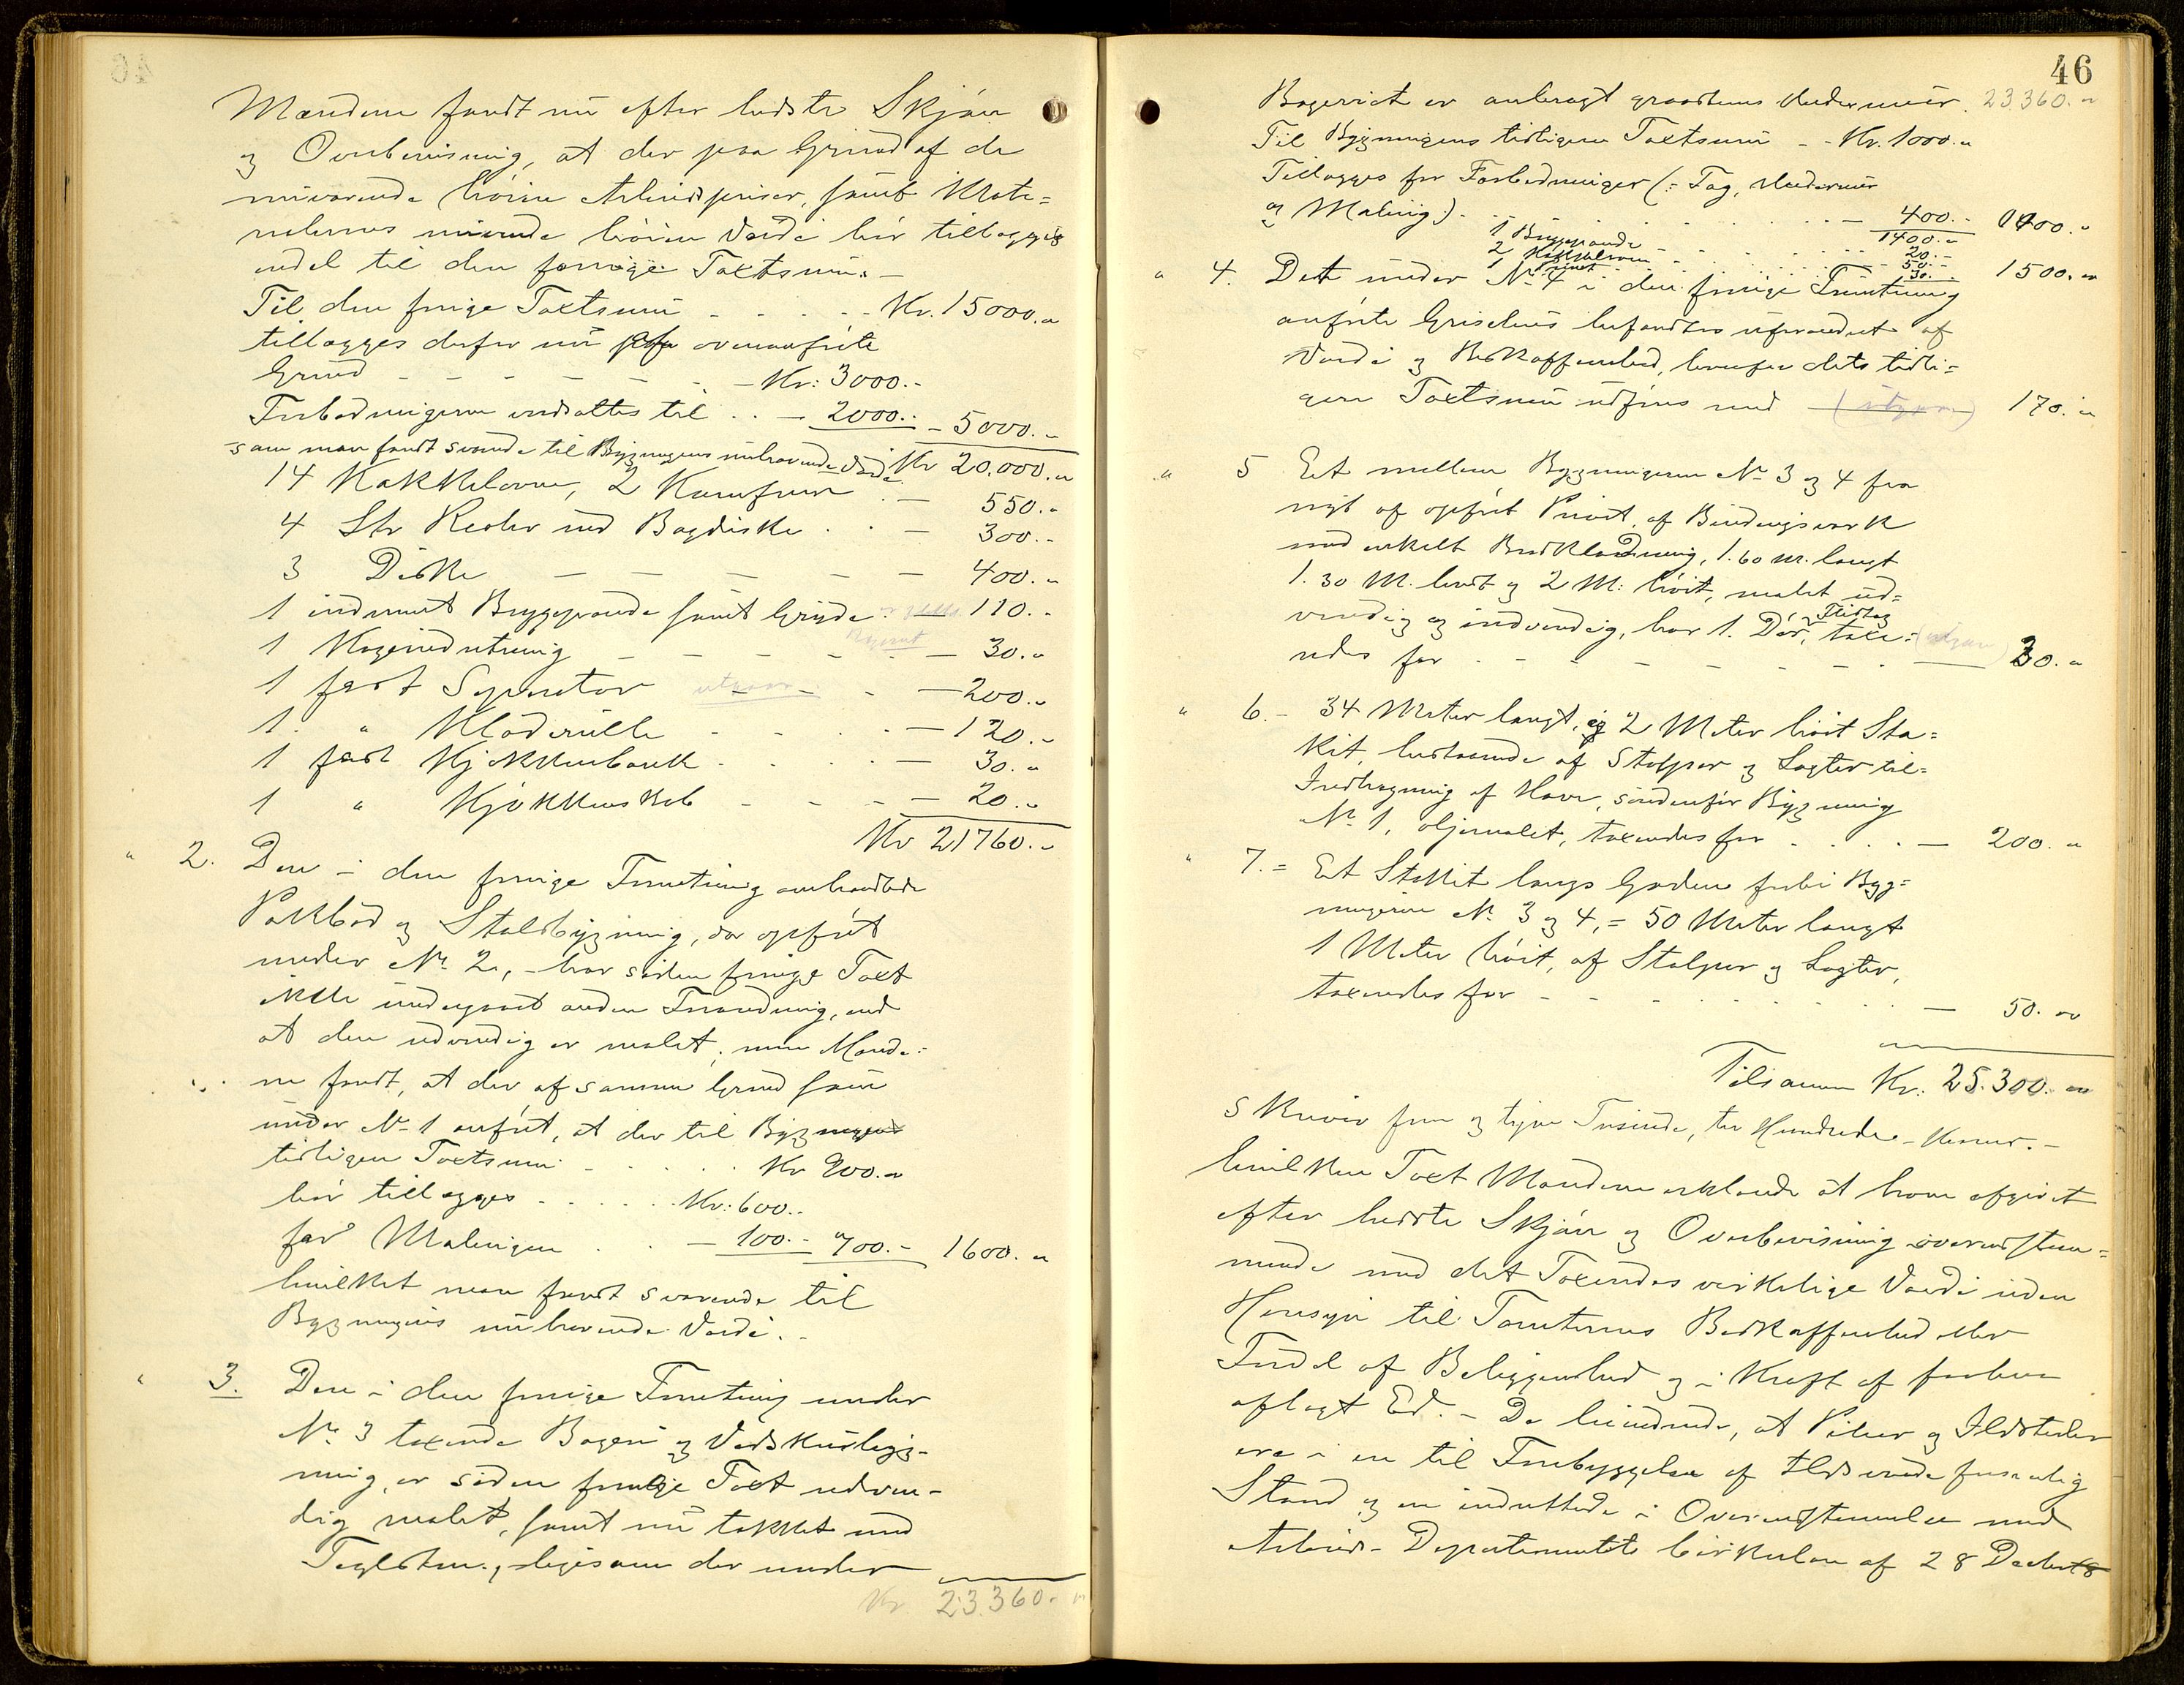 Mændene fandt nu efter bedste Skjøn
og Overbevisning, at der paa Grund af de
nuværende høiere Arbeidspriser, samt Mate=
rialernes nuværende høiere Værdi bør tillægges
endel til den forrige Taxtsum. —
Til den forrige Taxtsum - - - - - Kr. 15000.„
tillægges derfor nu paa ovenanførte
Grund - - - - - - - Kr: 3000.-
Forbedringerne ansattes til . . — 2000.- - 5000.-
som man fandt svarende til Bygningens nuhavende Værdi Kr 20.000.„
14 Kakkelovne, 2 Komfurer . — 550.„
4 Stk Reoler med Bagdiske . . — 300.-
3 Diske — — — — — 400.„
1 indmuret Bryggepande samt Gryde — 110.-
1 Kogeindretning — — — - - — 30.„
1 fast Separator utgaar - - — 200.„
1. „ Klæderulle - - - . — 120.-
1 fast Kjøkkenbænk - . . . — 30.„
1 „ Kjøkkenskab - - - — 20.„
Kr 21760.-
„ 2. Den i den forrige Forretning omhandlede
Pakbod og Staldbygning, der opført
under No 2, - har siden forrige Taxt
ikke undergaaet anden Forandring, end
at den udvendig er malet, men Mænde=
ne fandt, at der af samme Grund som
under No 1 anført, at der til Bygningens
tidligere Taxtsum - . . . . Kr 900.„
bør tillægges . . . . . Kr: 600.-
for Malingen . . — 100.- 700.- 1600.„
hvilket man fandt svarende til
Bygningens nuhavende Værdi. -
„ 3. Den i den forrige Forretning under
No 3 taxerede Bageri og Vedskursbyg-
ning, er siden forrige Taxt udven-
dig malet, samt nu takket med
Taglsten, ligesom der under
Kr 23.360.„
46
Bageriet er anbragt graastens Undermuur. 23360.„
Til Bygningens tidligere Taxtsum - - Kr. 1000.„
Tillægges for Forbedringer (: Tag, Undermur
og Maling:) . . . . . . . . — 400.- 1400.„
1400.„
1 Bryggepande - - - - - 20.-
2 Kakkelovne - . . . . 50.-
1 Privet . . . . . . 30.- 1500.„
„ 4. Det under No 4 i den forrige Forretning
anførte Grisehus befandtes uforandret af
Værdi og Beskaffenhed, hvorfor dets tidli=
gere Taxtsum udføres med (utgaar) 170.„
„ 5 Et mellem Bygningerne No 3 og 4 fra
nyt af opført Privet, af Bindingsværk
med enkelt Bordklædning, 1.60 M. langt
1.30 M. bredt og 2 M. høit, malet ud=
vendig og indvendig, har 1. Dør, Flistag taxe= (utgaar)
redes for - - - - - - - . — 30.„
„ 6. - 34 Meter langt, og 2 Meter høit Sta=
kit, bestaaende af Stolper og Lægter til
Indhegning af Have, søndenfor Bygning
No 1, oljemalet, taxeredes for . . . . — 200.„
„ 7. = Et Stakit langs Gaden forbi Byg=
ningerne No 3 og 4, = 50 Meter langt
1 Meter høit, af Stolper og Lægter,
taxeredes for - - - . . . . . . — 50.„
Tilsammen Kr. 25.300.„
skriver fem og tyve Tusinde, tre Hundrede Kroner. -
hvilken Taxt Mændene erklærede at have afgivet
efter bedste Skjøn og Overbevisning overensstem=
mende med det Taxeredes virkelige Værdi uden
Hensyn til Tomternes Beskaffenhed eller
Fordel af Beliggenhed og i Kraft af forhen
aflagt Ed. - De bevidnede, at Piber og Ildsteder
ere i en til Forebyggelse af Ildsvaade forsvarlig
Stand og ere indrettede i Overensstemmelse med
Arbeids-Departementets Cirkulære af 28 Decbr 18